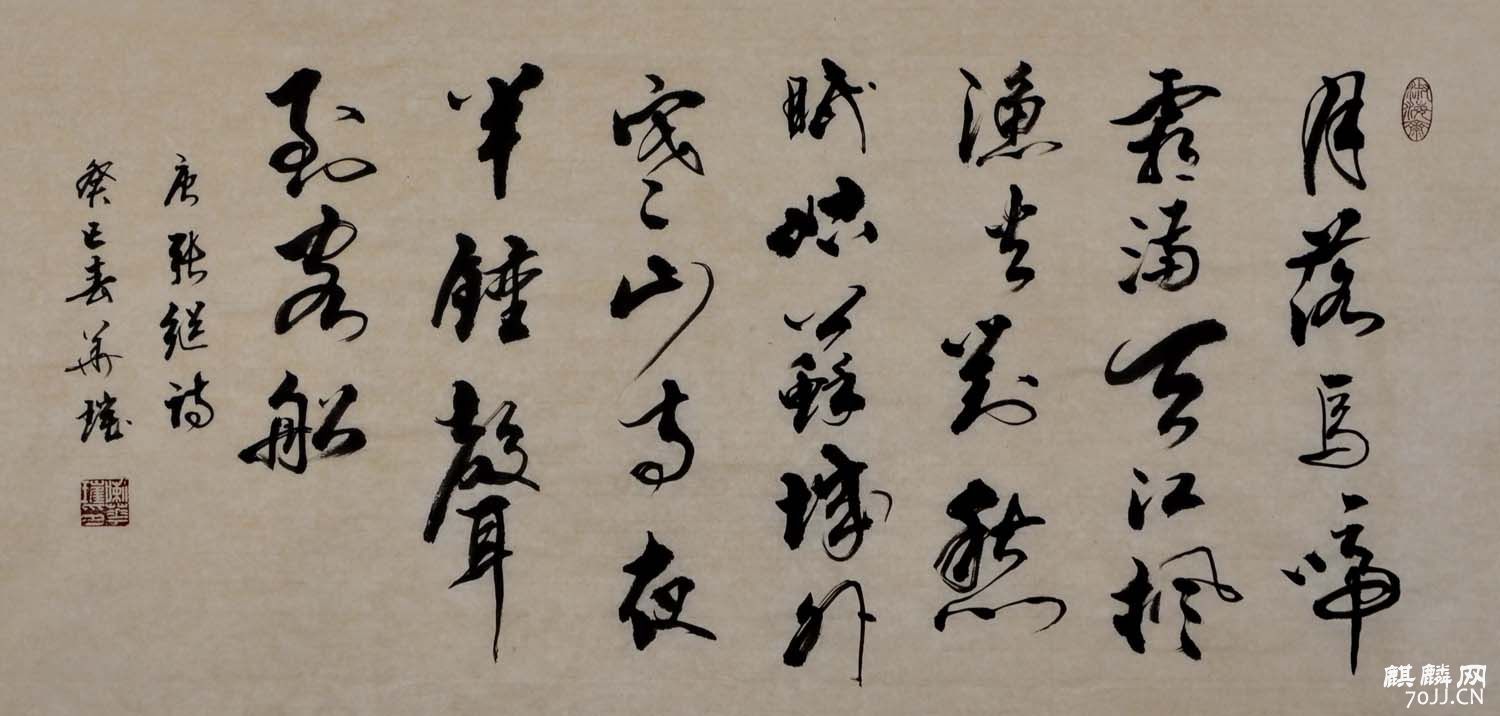 月落烏啼
霜滿天江楓
漁火對愁
眠姑蘇城外
寒山寺夜
半鍾聲
到客船
唐張继詩
癸巳春華
麒麟网
70JJ.CN